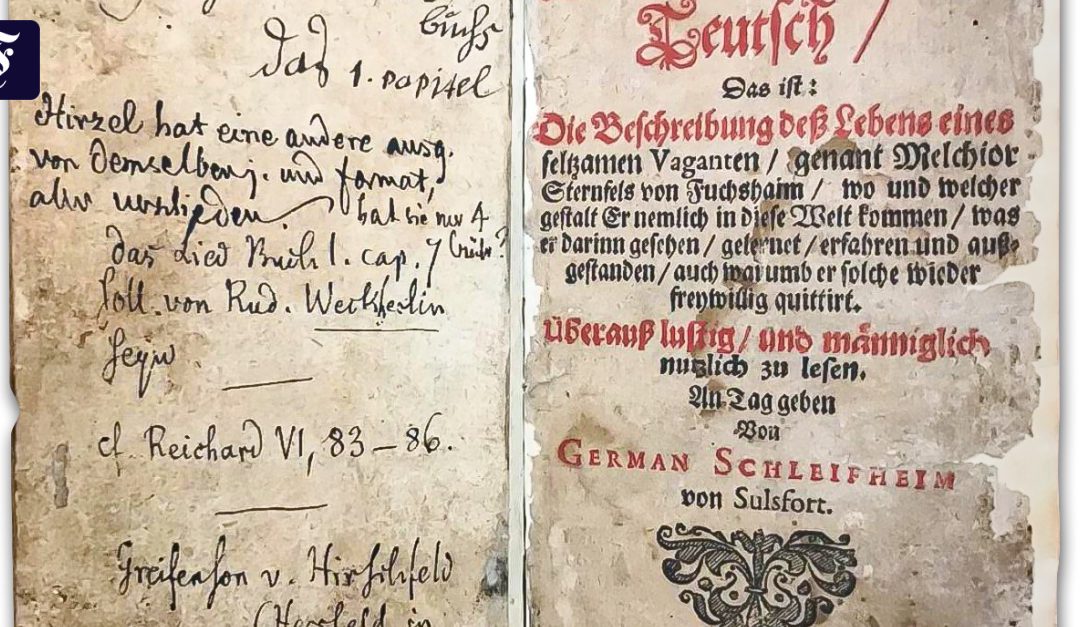 buchs
das 1. capitel
Hirzel hat eine andere ausg.
von demselben j. und format,
aber verschieden hat sie nur 4
das Lied Buch 1. cap. 7
soll von Rud. Weckherlin
seyn
cf. Reichard VI, 83–86.
Greifenson v. Hirschfeld
(Hersfeld in
Teutsch /
Das ist:
Die Beschreibung deß Lebens eines
seltzamen Vaganten / genant Melchior
Sternfels von Fuchshaim / wo und welcher
gestalt Er nemlich in diese Welt kommen / was
er darinn gesehen / gelernet / erfahren und auß-
gestanden / auch warumb er solche wieder
freywillig quittirt.
Überauß lustig / und männiglich
nutzlich zu lesen.
An Tag geben
Von
GERMAN SCHLEIFHEIM
von Sulsfort.